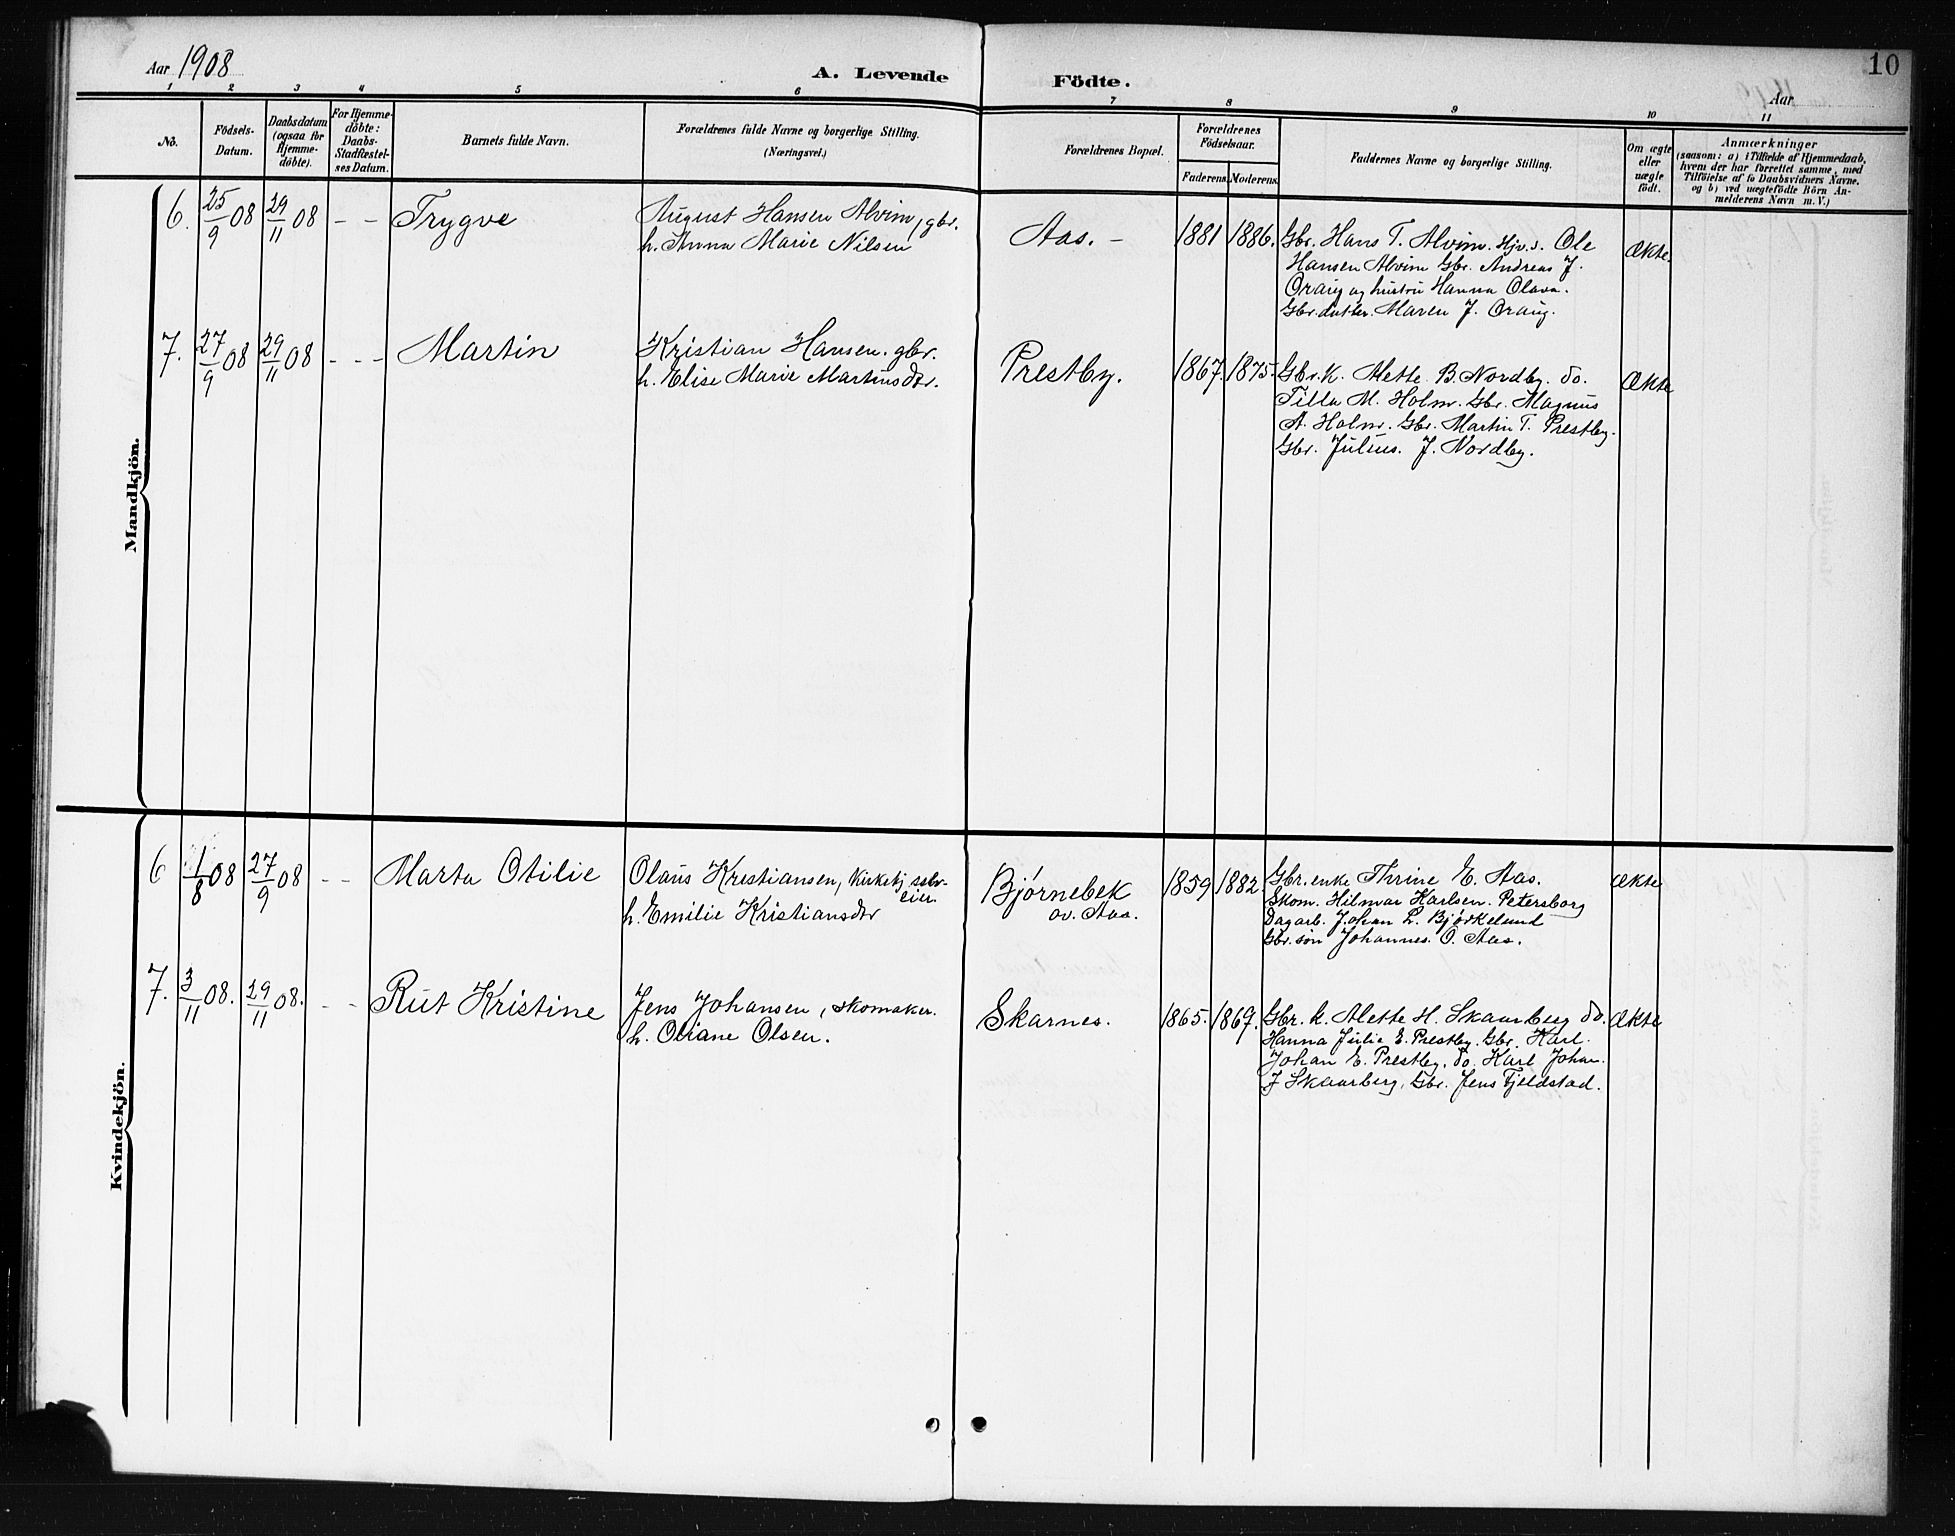 Aar 1908
A. Levende Födte.
10
Aar
1 2 3 4 5 6 7 8 9 10 11
No.
Födsels-
Datum.
Daabsdatum
(ogsaa for
Hjemme-
döbte).
For Hjemme-
döbte:
Daabs-
Stadfæstel-
ses Datum.
Barnets fulde Navn.
Forældrenes fulde Navne og borgerlige Stilling.
(Næringsvei.)
Forældrenes Bopæl.
Forældrenes
Födselsaar.
Faderens. Moderens.
Faddernes Navne og borgerlige Stilling.
Om ægte
eller
uægte
födt.
Anmærkninger
(saasom: a) i Tilfælde af Hjemmedaab,
hvem der har forrettet samme, med
Tilföielse af to Daabsvidners Navne,
og b) ved uægtefödte Börn An-
melderens Navn m. V.)
Mandkjön.
6. 25/9 08 29/11 08 - - Trygve
August Hansen Alvim, gbr.
h. Anna Marie Nilsen
Aas. -
1881 1886.
Gbr. Hans T. Alvim. Hjv. s. Ole
Hansen Alvim Gbr. Andreas J.
Oraug og hustru Hanna Olava.
Gbr. datter. Maren J. Oraug.
Ækte.
7. 27/9 08 29/11 08 - - - Martin
Kristian Hansen. gbr.
h. Elise Marie Martinsdtr.
Prestby.
1867. 1875.
Gbr. K. Alette B. Nordby. do.
Tilla M. Holm. Gbr. Magnus
A. Holm. Gbr. Martin T. Prestby.
Gbr. Julius. J. Nordby.
Ækte
Kvindekjön.
6 1/8 08 27/9 08 - - Marta Otilie
Olaus Kristiansen, Kirketj. selv-
eier.
h. Emilie Kristiansdtr
Bjørnebek
ov. Aas.
1859 1882.
Gbr. enke Thrine E. Aas.
Skom. Hilmar Karlsen. Petersborg
Dagarb. Johan L. Bjørkelund
Gbr. søn Johannes. O. Aas.
Ækte
7. 3/11 08. 29/11 08. - - Rut Kristine
Jens Johansen, skomaker.
h. Oliane Olsen.
Skarnes.
1865. 1869.
Gbr. k. Alette H. Skaarberg do.
Hanna Julie E. Prestby. Gbr. Karl.
Johan E. Prestby. do. Karl Johan.
J Skaarberg, Gbr. Jens Fjeldstad.
Ækte